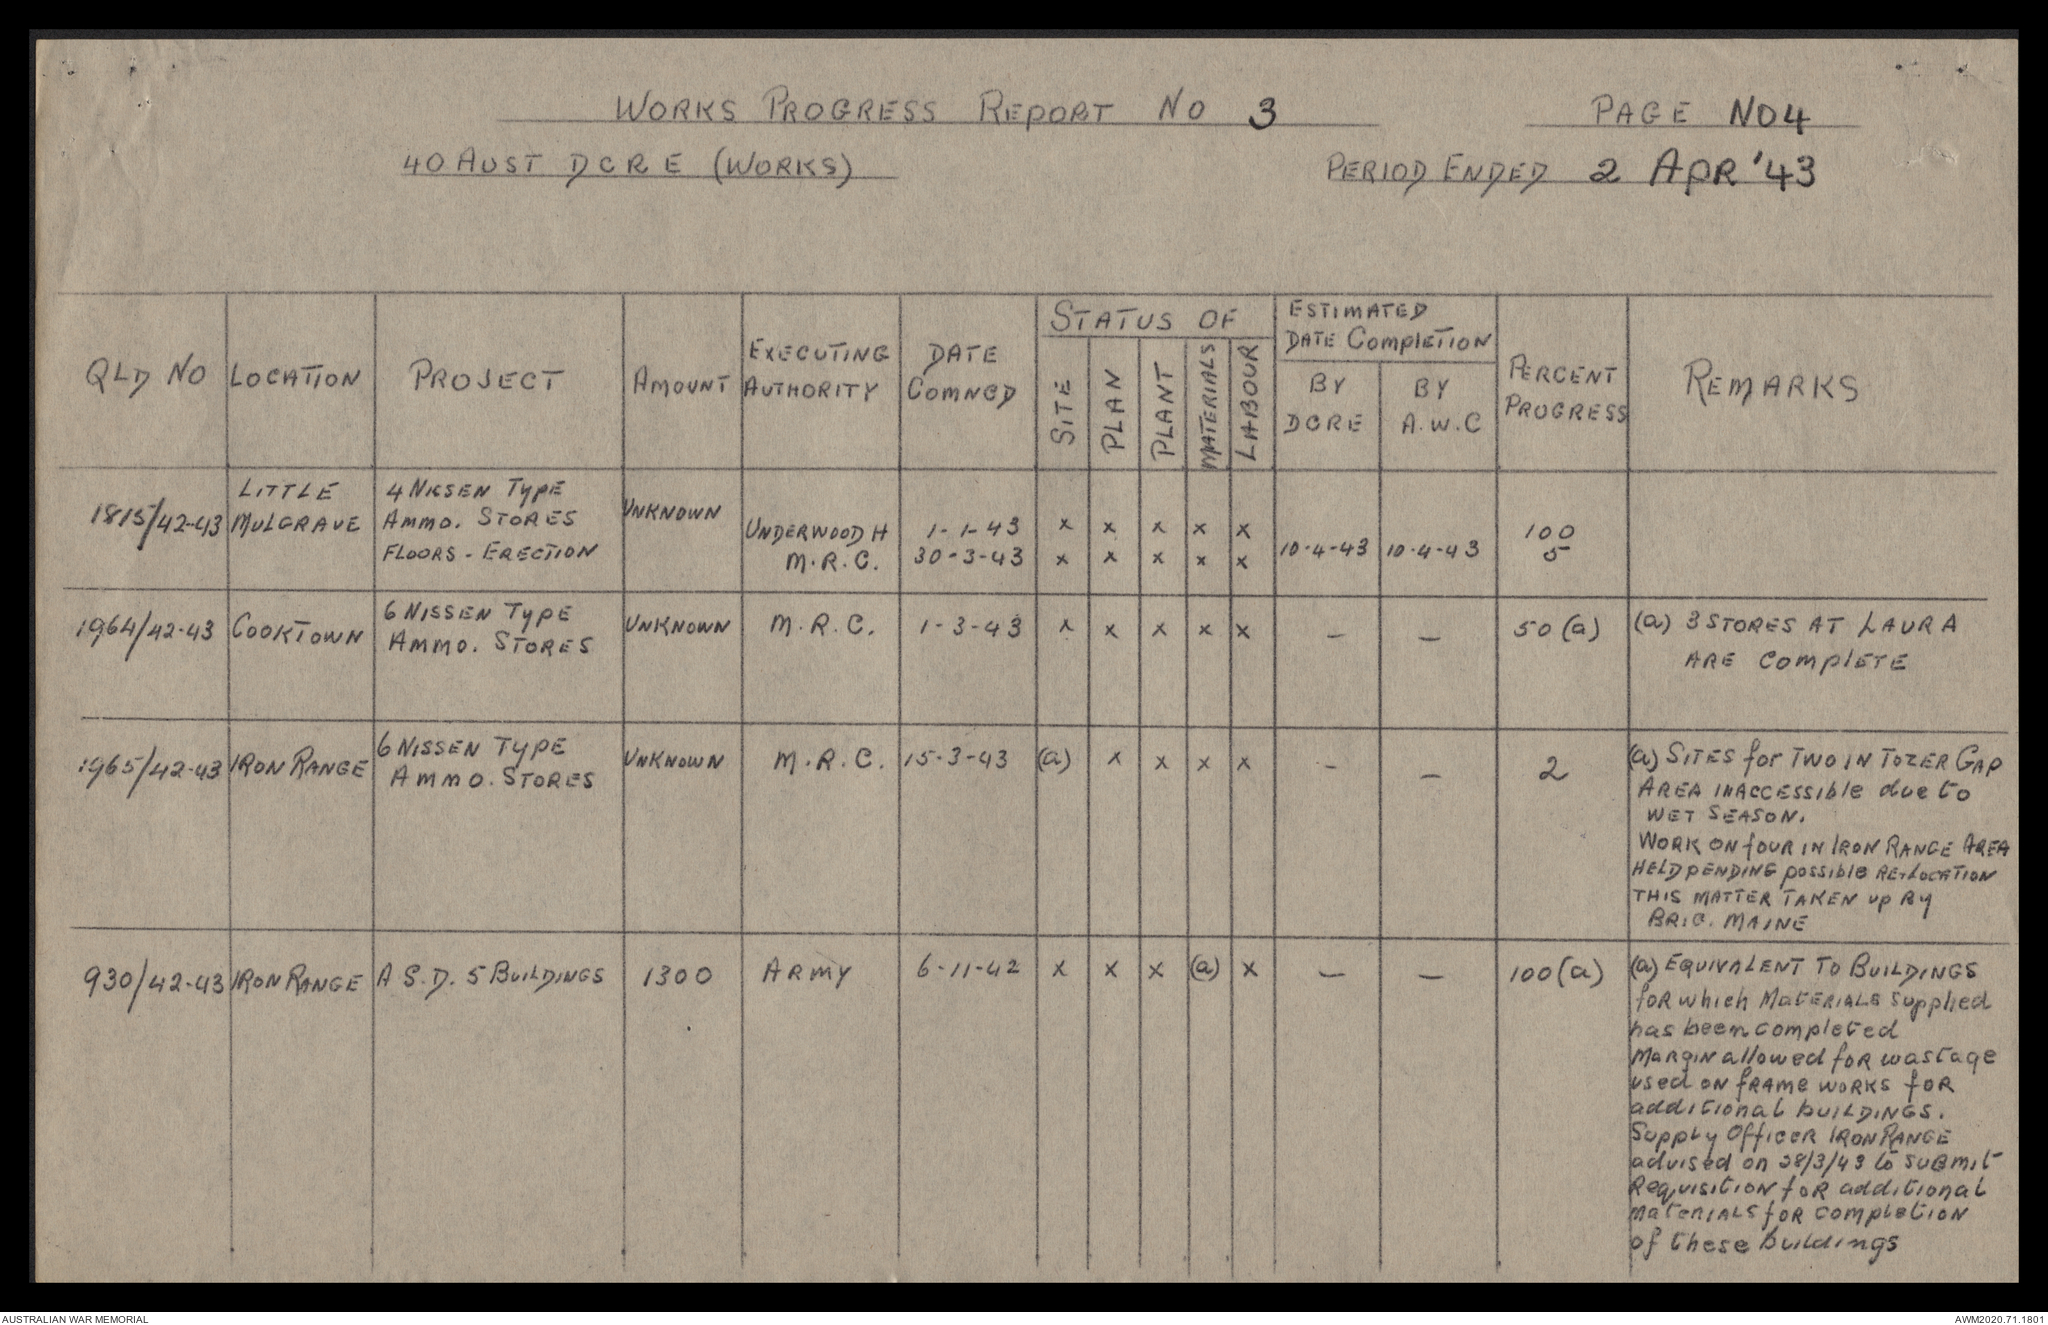 WORKS PROGRESS REPORT NO 3
PAGE NO 4
40 AUST DCRE (WORKS)
PERIOD ENDED 2 APR '43
QLD NO
LOCATION
PROJECT
AMOUNT
EXECUTING
AUTHORITY
DATE
COMNCD
STATUS OF
SITE
PLAN
PLANT
MATERIALS
LABOUR
ESTIMATED
DATE COMPLETION
BY
DCRE
BY
A.W.C
PERCENT
PROGRESS
REMARKS
1815/42-43
LITTLE
MULGRAVE
4 NISSEN TYPE
AMMO. STORES
FLOORS - ERECTION
UNKNOWN
UNDERWOOD H
M.R.C.
1-1-43
30-3-43
x x x x x
x x x x x
10-4-43
10-4-43
100
5
1964/42-43
COOKTOWN
6 NISSEN TYPE
AMMO. STORES
UNKNOWN
M.R.C.
1-3-43
x x x x x
–
–
50 (a)
(a) 3 STORES AT LAURA
ARE COMPLETE
1965/42-43
IRON RANGE
6 NISSEN TYPE
AMMO. STORES
UNKNOWN
M.R.C.
15-3-43
(a) x x x x
–
–
2
(a) SITES for TWO IN TOZER GAP
AREA INACCESSIble due to
WET SEASON.
WORK ON fOUR IN IRON RANGE AREA
HELD PENDING possible RE-LOCATION
THIS MATTER TAKEN up By
BRIG. MAINE
930/42-43
IRON RANGE
A S.D. 5 BUILDINGS
1300
ARMY
6-11-42
x x x (a) x
–
–
100 (a)
(a) EQUIVALENT TO BUILDINGS
fOR which MATERIALS supplied
has been completed
MARGIN allowed fOR wastage
used ON fRAME WORKS fOR
additional buildings.
Supply Officer IRON RANGE
advised on 28/3/43 to submit
Requisition fOR additional
MATERIALS fOR completion
of these buildings
AUSTRALIAN WAR MEMORIAL
AWM2020.71.1801